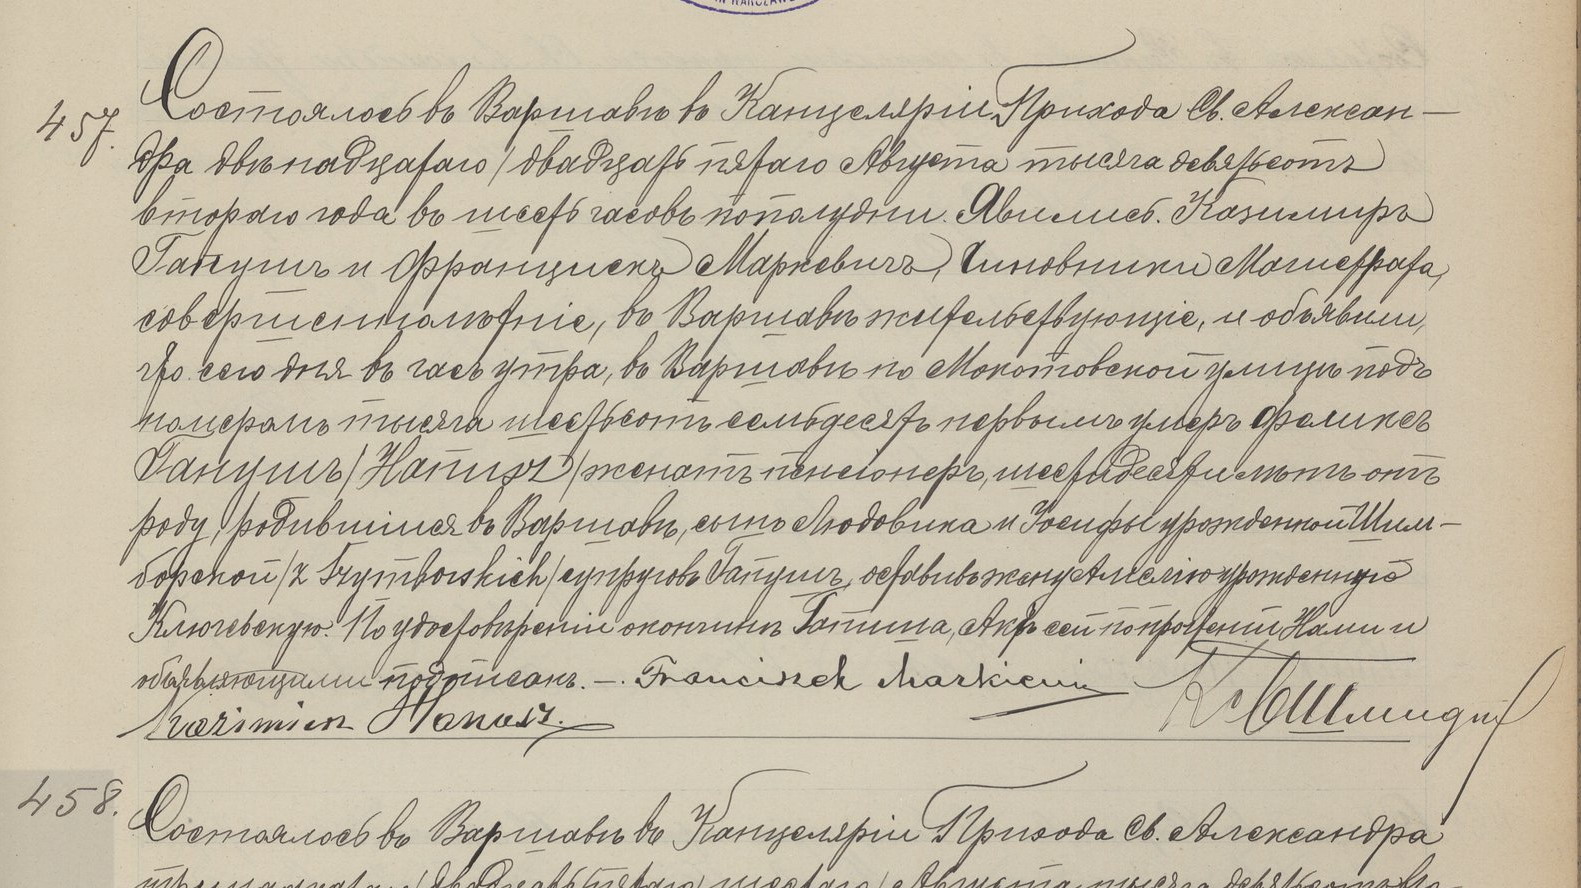 IN WARSZAWA
457.
Состоялось въ Варшавѣ въ Канцеляріи Прихода Св. Алексан—
дра двѣнадцатаго / двадцать пятаго Августа тысяча девятьсотъ
второго года въ шесть часовъ пополудни. Явились: Казимиръ
Ганушъ и Францискъ Маркевичъ, чиновники Магистрата,
совершеннолѣтніе, въ Варшавѣ жительствующіе, и объявили,
что сего дня въ часъ утра, въ Варшавѣ по Мокотовской улицѣ подъ
номеромъ тысяча шестьсотъ семьдесятъ первымъ умеръ Феликсъ
Ганушъ /Hanusz/ женатъ пенсіонеръ, шестидесяти лѣтъ отъ
роду, родившійся въ Варшавѣ, сынъ Людовика и Іосифы урожденной Шим—
борской /z Szymborskich/ супруговъ Ганушъ, оставивъ жену Амелію урожденную
Ключевскую. По удостовѣреніи о кончинѣ Ганиша, Актъ сей по прочтеніи Нами и
объявляющими подписанъ. —. Franciszek Markiewicz
Kazimierz Hanusz.
458.
Состоялось въ Варшавѣ въ Канцеляріи Прихода Св. Александра